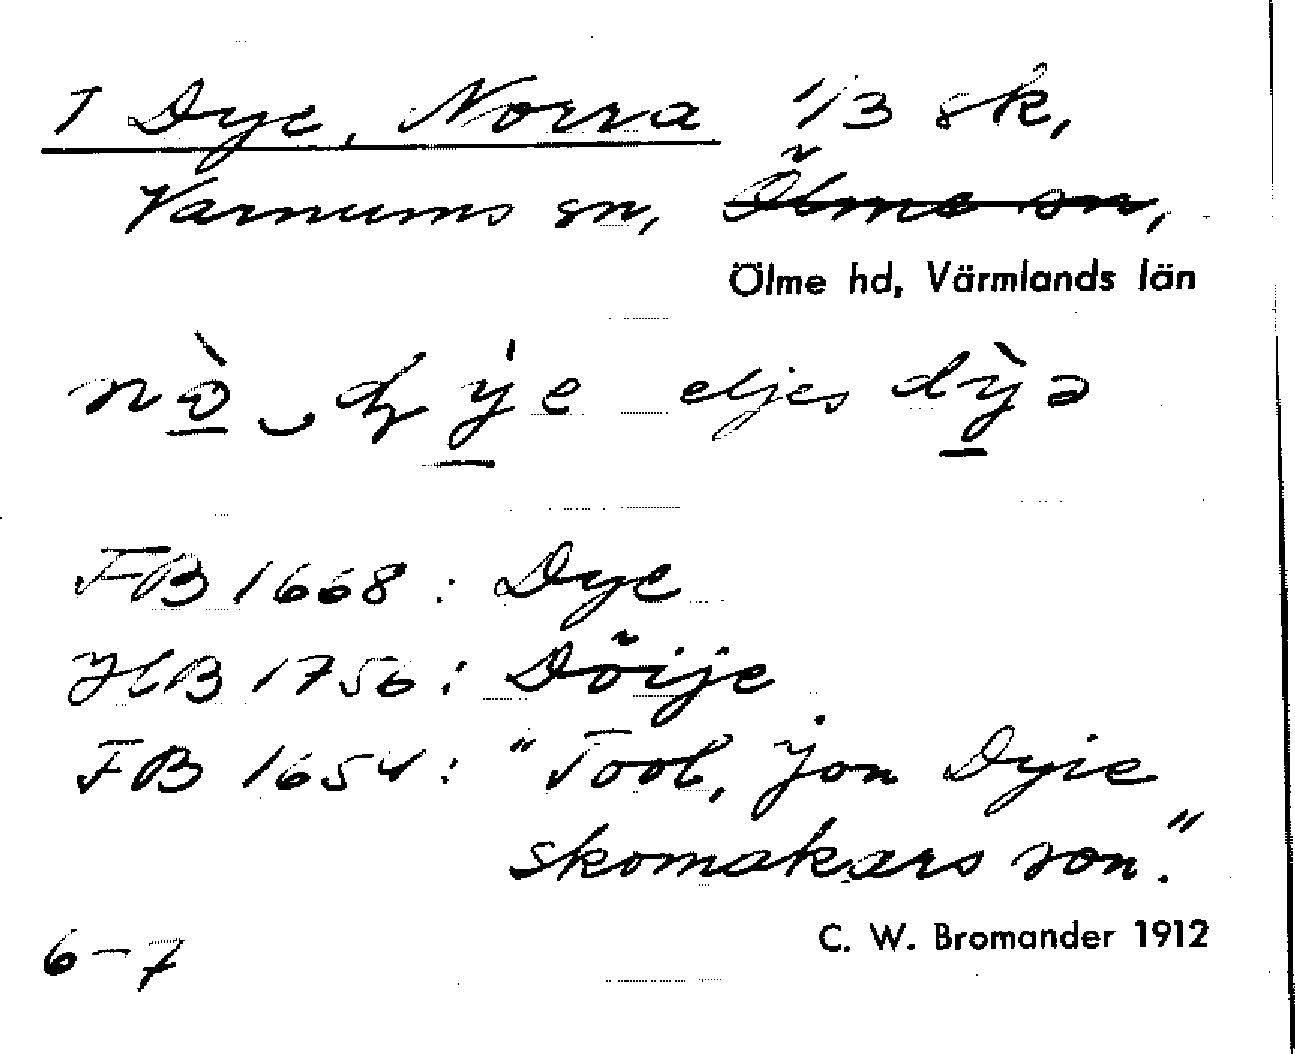 1 Dye, Norra 1/3 sk,
Varnums sn, Ölme sn,
Ölme hd, Värmlands län
eljes dỳ̠ə
FB 1668: Dye
HB 1756: Döije
FB 1654: "Tool, Jon Dyie
skomakars son."
C. W. Bromander 1912
6-7